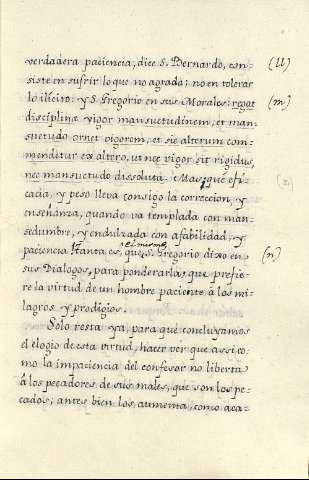 verdadera paciencia, dice S. Bernardo, con- (ll)
siste en sufrir lo que no agrada; no en tolerar
lo ilicito: y S. Gregorio en sus Morales: regat (m)
disciplinæ vigor mansuetudinem, et man-
suetudo ornet vigorem, et sic alterum com-
mendetur ex altero, ut nec vigor sit rigidus,
nec mansuetudo dissoluta. Mas, que efi-
cacia, y peso lleva consigo la correccion, y
enseñanza, quando va templada con man-
sedumbre, y endulzada con afabilidad, y
el mismo
paciencia! Tanta es, que S. Gregorio dixo en (n)
sus Dialogos, para ponderarla, que prefie-
re la virtud de un hombre paciente â los mi-
lagros y prodigios.
Solo resta ya, para que concluyamos
el elogio de esta virtud, hacer ver que assi co-
mo la impaciencia del confesor no liberta
â los pecadores de sus males, que son los pe-
cados; antes bien los aumenta, como aca-